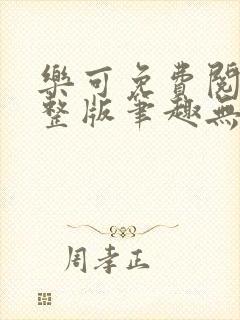 樂可免費閱
整版筆趣無
周孝正